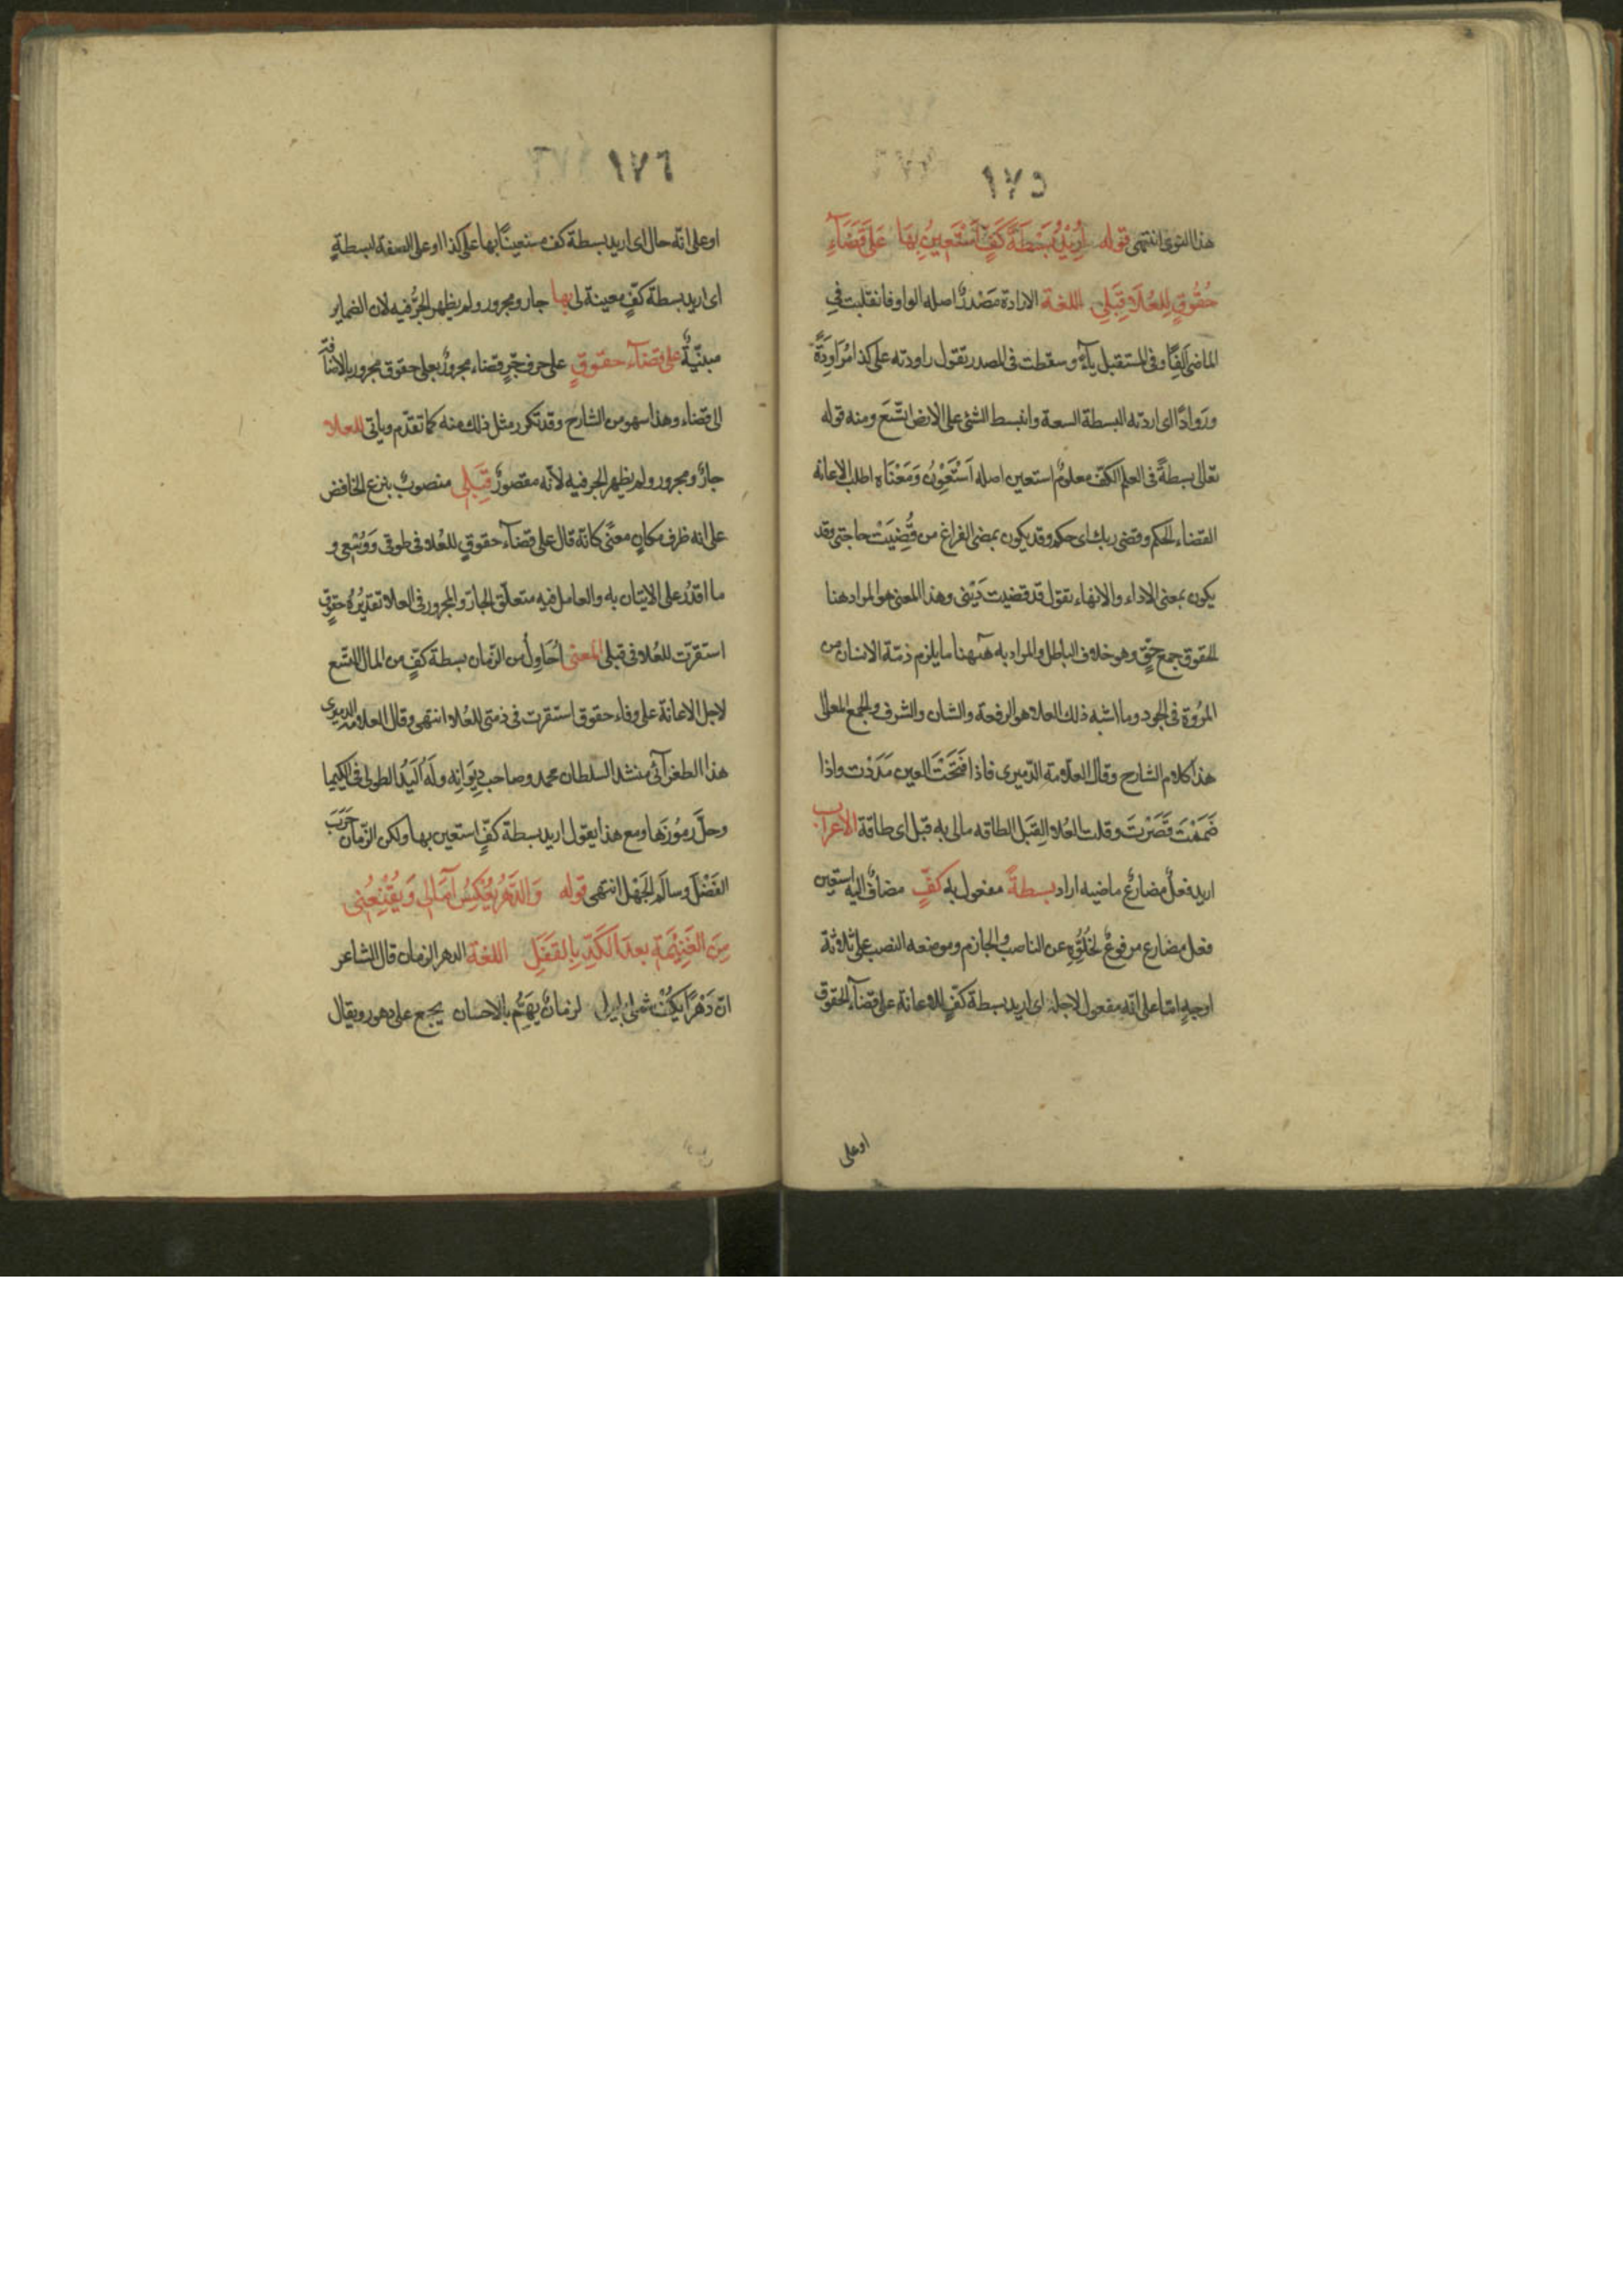 ١٧٥
هذا النوى انتهى قوله أُرِيْدُ بَسْطَةَ كَفٍّ أَسْتَعِيْنُ بِهَا عَلَى قَضَآءِ
حُقُوْقٍ لِلْعُلَا قِبَلِي اللغة الارادة مَصْدرٌ اصله الواو فانقلبت في
الماضى اَلِفًا وفى المستقبل يآءً وسقطت فى المصدر تقول راودته على كذا مُرَاوَدَةً
ورَوادًا اى اردته البسطة السعة وانبسط الشئ على الارض اتّسَعَ ومنه قوله
تعالى بسطةً فى العلم الكفّ معلومٌ استعين اصله اَسْتَعْوِنُ وَمَعْنَاه اطلب الاعانه
القضاء الحكم وقضى ربك اى حكم وقد يكون بمعنى الفراغ من قُضِيَتْ حاجتى وقد
يكون بمعنى الاداء والانهاء تقول قد قضيت دَيْنى وهذا المعنى هو المراد هنا
الحقوق جمع حقٍّ وهو خلاف الباطل والمراد به هٓهنا ما يلزم ذمّة الانسان من
المرُوة فى الجود وما اشبه ذلك العلا هو الرفعة والشان والشرف والجمع المعالى
هذا كلام الشارح وقال العلّامة الدّميرى فاذا فَتَحْتَ العين مَدَدْت واذا
ضَمَمْتَ قَصَرْتَ وقلت العُلا القِبَل الطاقه مالى به قبل اى طاقة الاعراب
اريد فعلٌ مضارعٌ ماضيه اراد بسطةً مفعول به كفٍّ مضافٌ اليه استعين
فعل مضارع مرفوعٌ لخُلُوِّهِ عن الناصب والجازم وموضعه النصب على ثلاثة
اوجهٍ امّا على انّه مفعول لاجله اى اريد بسطة كفٍّ للاعانة على قضآء الحقوق
اوعلى
١٧٦
اوعلى انّه حال اى اريد بسطة كف مستعينًا بها على كذا اوعلى الصفة لبسطةٍ
اى اريد بسطة كفٍّ معينة لى بها جار ومجرور ولم يظهر الجرُّ فيه لان الضماير
مبنيّةٌ على قضآء حقوقٍ على حرف جرٍّ قضاء مجرورٌ بعلى حقوق مجرور بالاضافة
الى قضاء وهذا سهو من الشارح وقد تكرر مثل ذلك منه كما تقدّم وياتى للعلا
جارٌ ومجرور ولم يظهر الجر فيه لانّه مقصورٌ قِبَلِى منصوبٌ بنزع الخافض
على انه ظرف مكانٍ معنًى كانّه قال على قضآء حقوقٍ للعُلا فى طوقى وَوُسْعِى و
ما اقدُر على الاتيان به والعامل فيه متعلّق الجار والمجرور فى العلا تقديْرُهُ حقوق
استقرّت للعُلا فى قبلى المعنى اُحَاوِلُ من الزّمان بسطة كفٍّ من المال اتّسع
لاجل الاعانة على وفاء حقوق استقرت فى ذمتى للعُلا انتهى وقال العلامة الدميرى
هذا الطغرآئى منشد السلطان محمد وصاحب دِيْوَانِه ولَهُ اليَدُ الطولى فى الكيميا
وحلَّ رمُوْزَها ومع هذا يقول اريد بسطة كفٍّ استعين بها ولكن الزّمان حَرَبَ
الفَضْلَ وسالَمَ الجَهْلَ انتهى قوله وَالدَّهْرُ يُعْكِسُ آمَالِى وَيُقْنِعُنِى
مِنَ الغَنِيْمَةِ بعدَ الكَدِّ بِالقَفَلِ اللغة الدهر الزمان قال الشاعر
انّ دَهْرًا يَلُفُّ شملى بليلى لزمانٌ يَهُمُّ بالاحسان يجمع على دهور ويقال